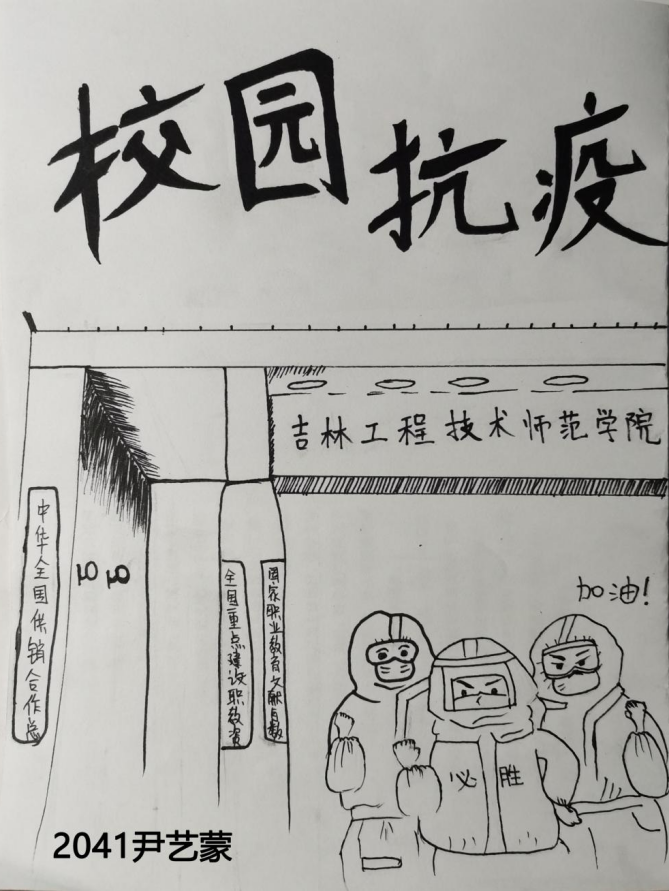 校园抗疫
吉林工程技术师范学院
中华全国供销合作总
全国重点建设职教资
国家职业教育文献与数
加油!
必胜
2041尹艺蒙